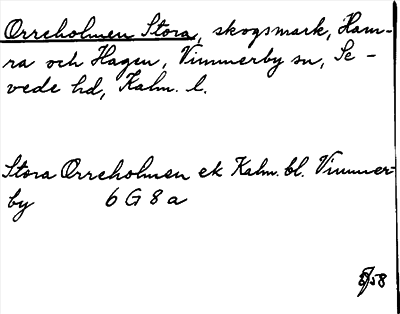 Orreholmen Stora, skogsmark, Ham-
ra och Hagen, Vimmerby sn, Se-
vede hd, Kalm. l.
Stora Orreholmen ek Kalm. bl. Vimmer-
by 6 G 8 a
58